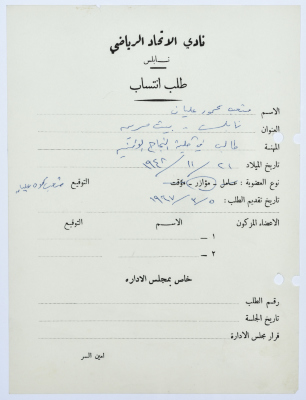 نادي الاتحاد الرياضي
نابلس
طلب انتساب
الاسم محمود عليان
العنوان نابلس - بيت
المهنة طالب في كلية النجاح الوطنية
تاريخ الميلاد ٢١ / ١١ / ١٩٤٨
نوع العضوية : عامل - مؤازر - مؤقت التوقيع
تاريخ تقديم الطلب : ٥ / ٣ / ١٩٦٧
الاعضاء المزكون الاسم التوقيع
١ -
٢ -
خاص بمجلس الاداره
رقم الطلب
تاريخ الجلسة
قرار مجلس الادارة
امين السر